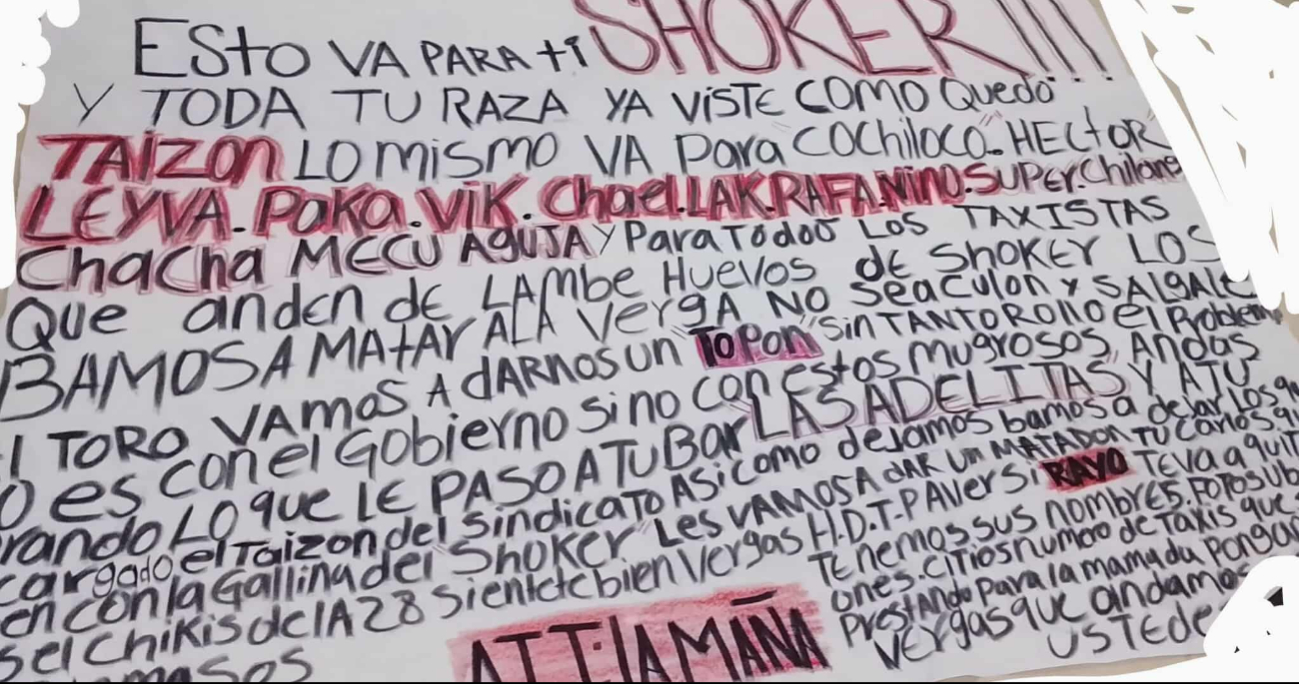 Esto VA PARA ti SHOKER!!!
Y TODA TU RAZA YA ViSTE COMO QuEDO
TAiZON LO mismo VA Para "COCHiLOCO". HECtOR
LEYVA. PaKa. ViK. Chael. LAK. RAFA. NiNO. SUPEr. Chilang
ChaCha MECCU AGUJA y Para TOdOS LOS TAXISTAS
QUE andEn dE LAMbE HUEVOS dE SHOKEr LOS
BAMOS A MAtAr ALA VErgA NO SEA CULON y SALgALE
l TORO VAmOS A dARNOS UN "ToPon" Sin TANTO ROllO el Problem
O es con el GObiErno Si no con estos mugrosos. Andas
rando LO que LE PASO A TU BAr "LAS ADELITAS" Y A TU
cargado el Taizon del SindicaTO ASi como dejamos bamos a dejar Los qu
en con la Gallina del SHOKEr Les VAMOS A dAR Un MATADON TU Carlos qu
s el CHiKiS de lA 28 SiEntete bien Vergas H.D.T.P AVer Si RAYO TE VA a quit
mosos
TEnemos sus nombres. FOTOS UB
ones. CiTios numero de Taxis que
PrestAndo Para la mamada Pongan
VErgas que andamos
USTEde
ATT: lA MAÑA